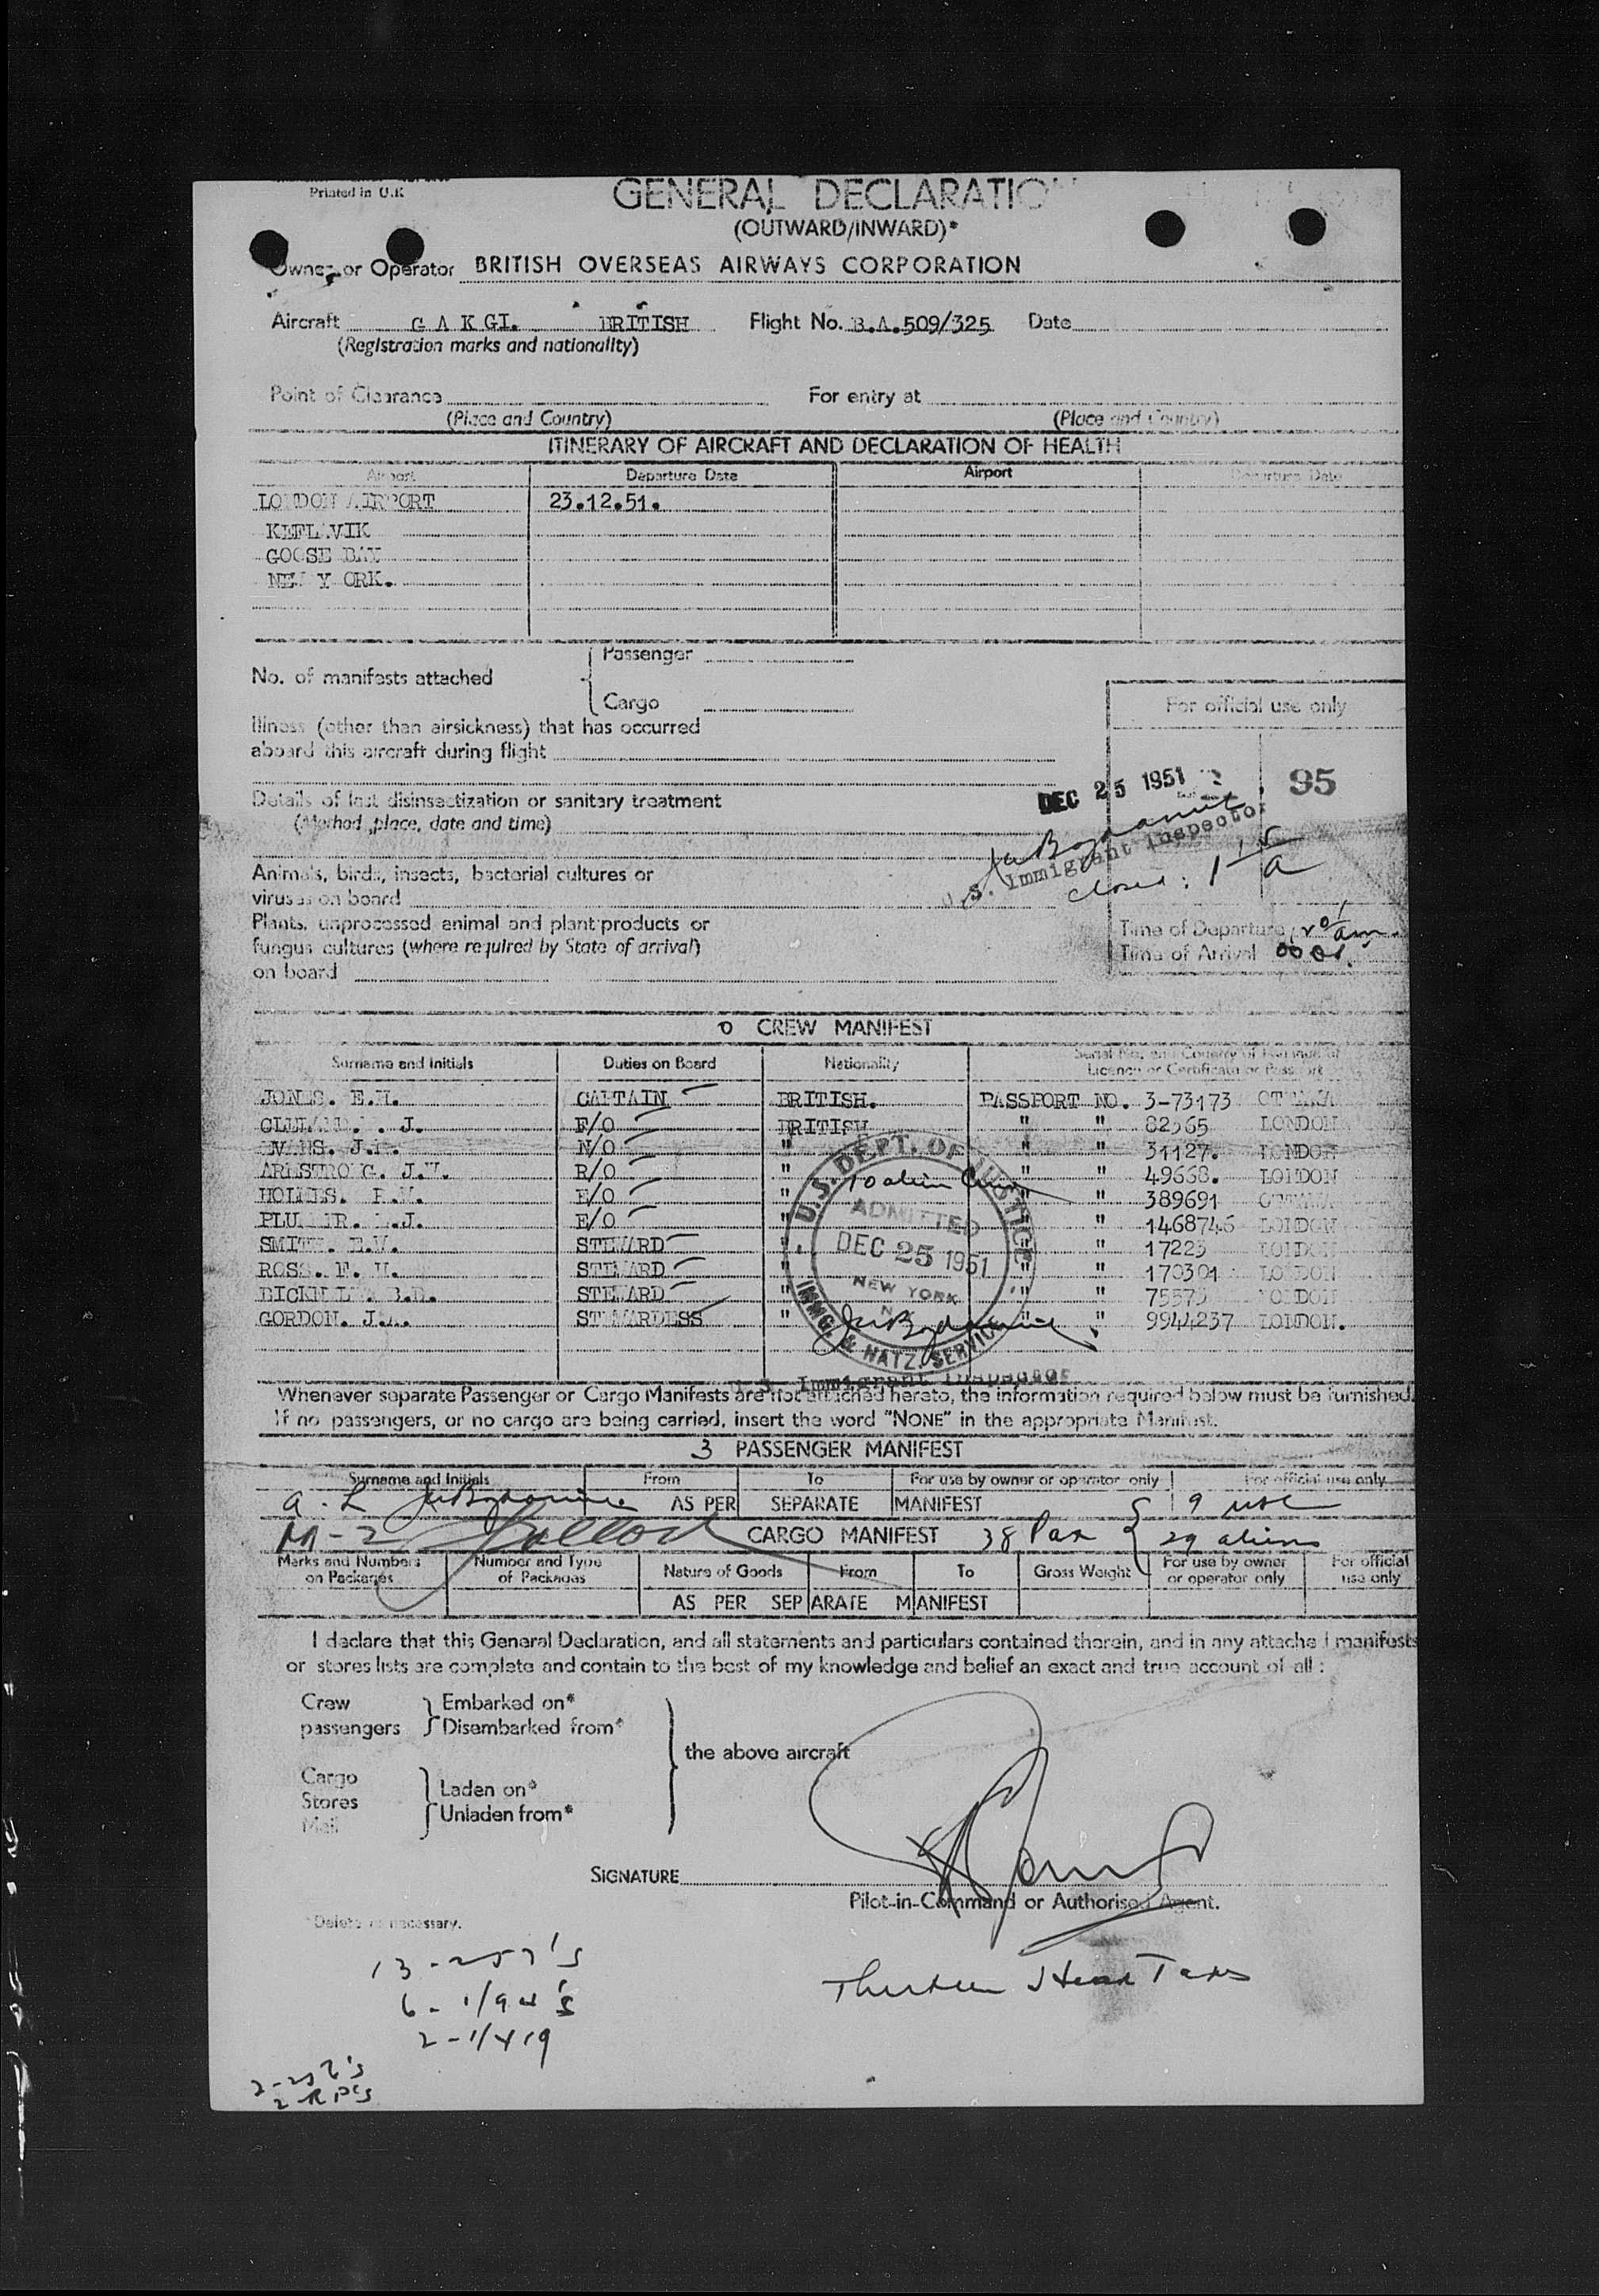 Printed in U.K
GENERAL DECLARATIO
(OUTWARD/INWARD)*
Owner or Operator BRITISH OVERSEAS AIRWAYS CORPORATION
Aircraft G A K GI. BRITISH Flight No. B.A.509/325 Date
(Registration marks and nationality)
Point of Clearance For entry at
(Place and Country) (Place and Country)
ITINERARY OF AIRCRAFT AND DECLARATION OF HEALTH
Airport Departure Date Airport Departure Date
LONDON AIRPORT 23.12.51.
KEFLAVIK
GOOSE BAY
NEW Y ORK.
No. of manifests attached
Passenger
Cargo
For official use only
Illness (other than airsickness) that has occurred
aboard this aircraft during flight
DEC 25 1951 95
Details of last disinsectization or sanitary treatment
(Method, place, date and time)
U.S. Immigrant Inspector
closed:
Animals, birds, insects, bacterial cultures or
viruses on board
Plants, unprocessed animal and plant products or
fungus cultures (where required by State of arrival)
on board
Time of Departure
Time of Arrival
CREW MANIFEST
Surname and Initials Duties on Board Nationality Serial No. and Country of
Licence or Certificate or Passport
JONES. E.H. CAPTAIN BRITISH. PASSPORT NO. 3-73173 OTTAWA
J. F/O BRITISH " " LONDON
EVANS. N/O " " " 31127. LONDON
ARMSTRONG. J.W. R/O " " " 49668. LONDON
HOLMES. E/O " " " 389691 OTTAWA
E/O " " " 1468746 LONDON
SMITH. E.V. STEWARD " " " LONDON
ROSS. F. STEWARD " " " 170301 LONDON
STEWARD " " " LONDON
GORDON. STEWARDESS " " " 9944237 LONDON.
U.S. DEPT. OF JUSTICE
ADMITTED
DEC 25 1951
NEW YORK
N.Y.
IMMG. & NATZ. SERVICE
U.S. Immigrant Inspector
Whenever separate Passenger or Cargo Manifests are not attached hereto, the information required below must be furnished.
If no passengers, or no cargo are being carried, insert the word "NONE" in the appropriate Manifest.
3 PASSENGER MANIFEST
Surname and Initials From To For use by owner or operator only For official use only
AS PER SEPARATE MANIFEST 9 usc
M-2 CARGO MANIFEST 38 Pax 29 aliens
Marks and Numbers on Packages Number and Type of Packages Nature of Goods From To Gross Weight For use by owner or operator only For official use only
AS PER SEPARATE MANIFEST
I declare that this General Declaration, and all statements and particulars contained therein, and in any attached manifests
or stores lists are complete and contain to the best of my knowledge and belief an exact and true account of all :
Crew Embarked on*
passengers Disembarked from*
the above aircraft
Cargo
Stores Laden on*
Mail Unladen from*
SIGNATURE
Pilot-in-Command or Authorised Agent.
*Delete as necessary.
13 - 257's
Thirteen Head Taxes